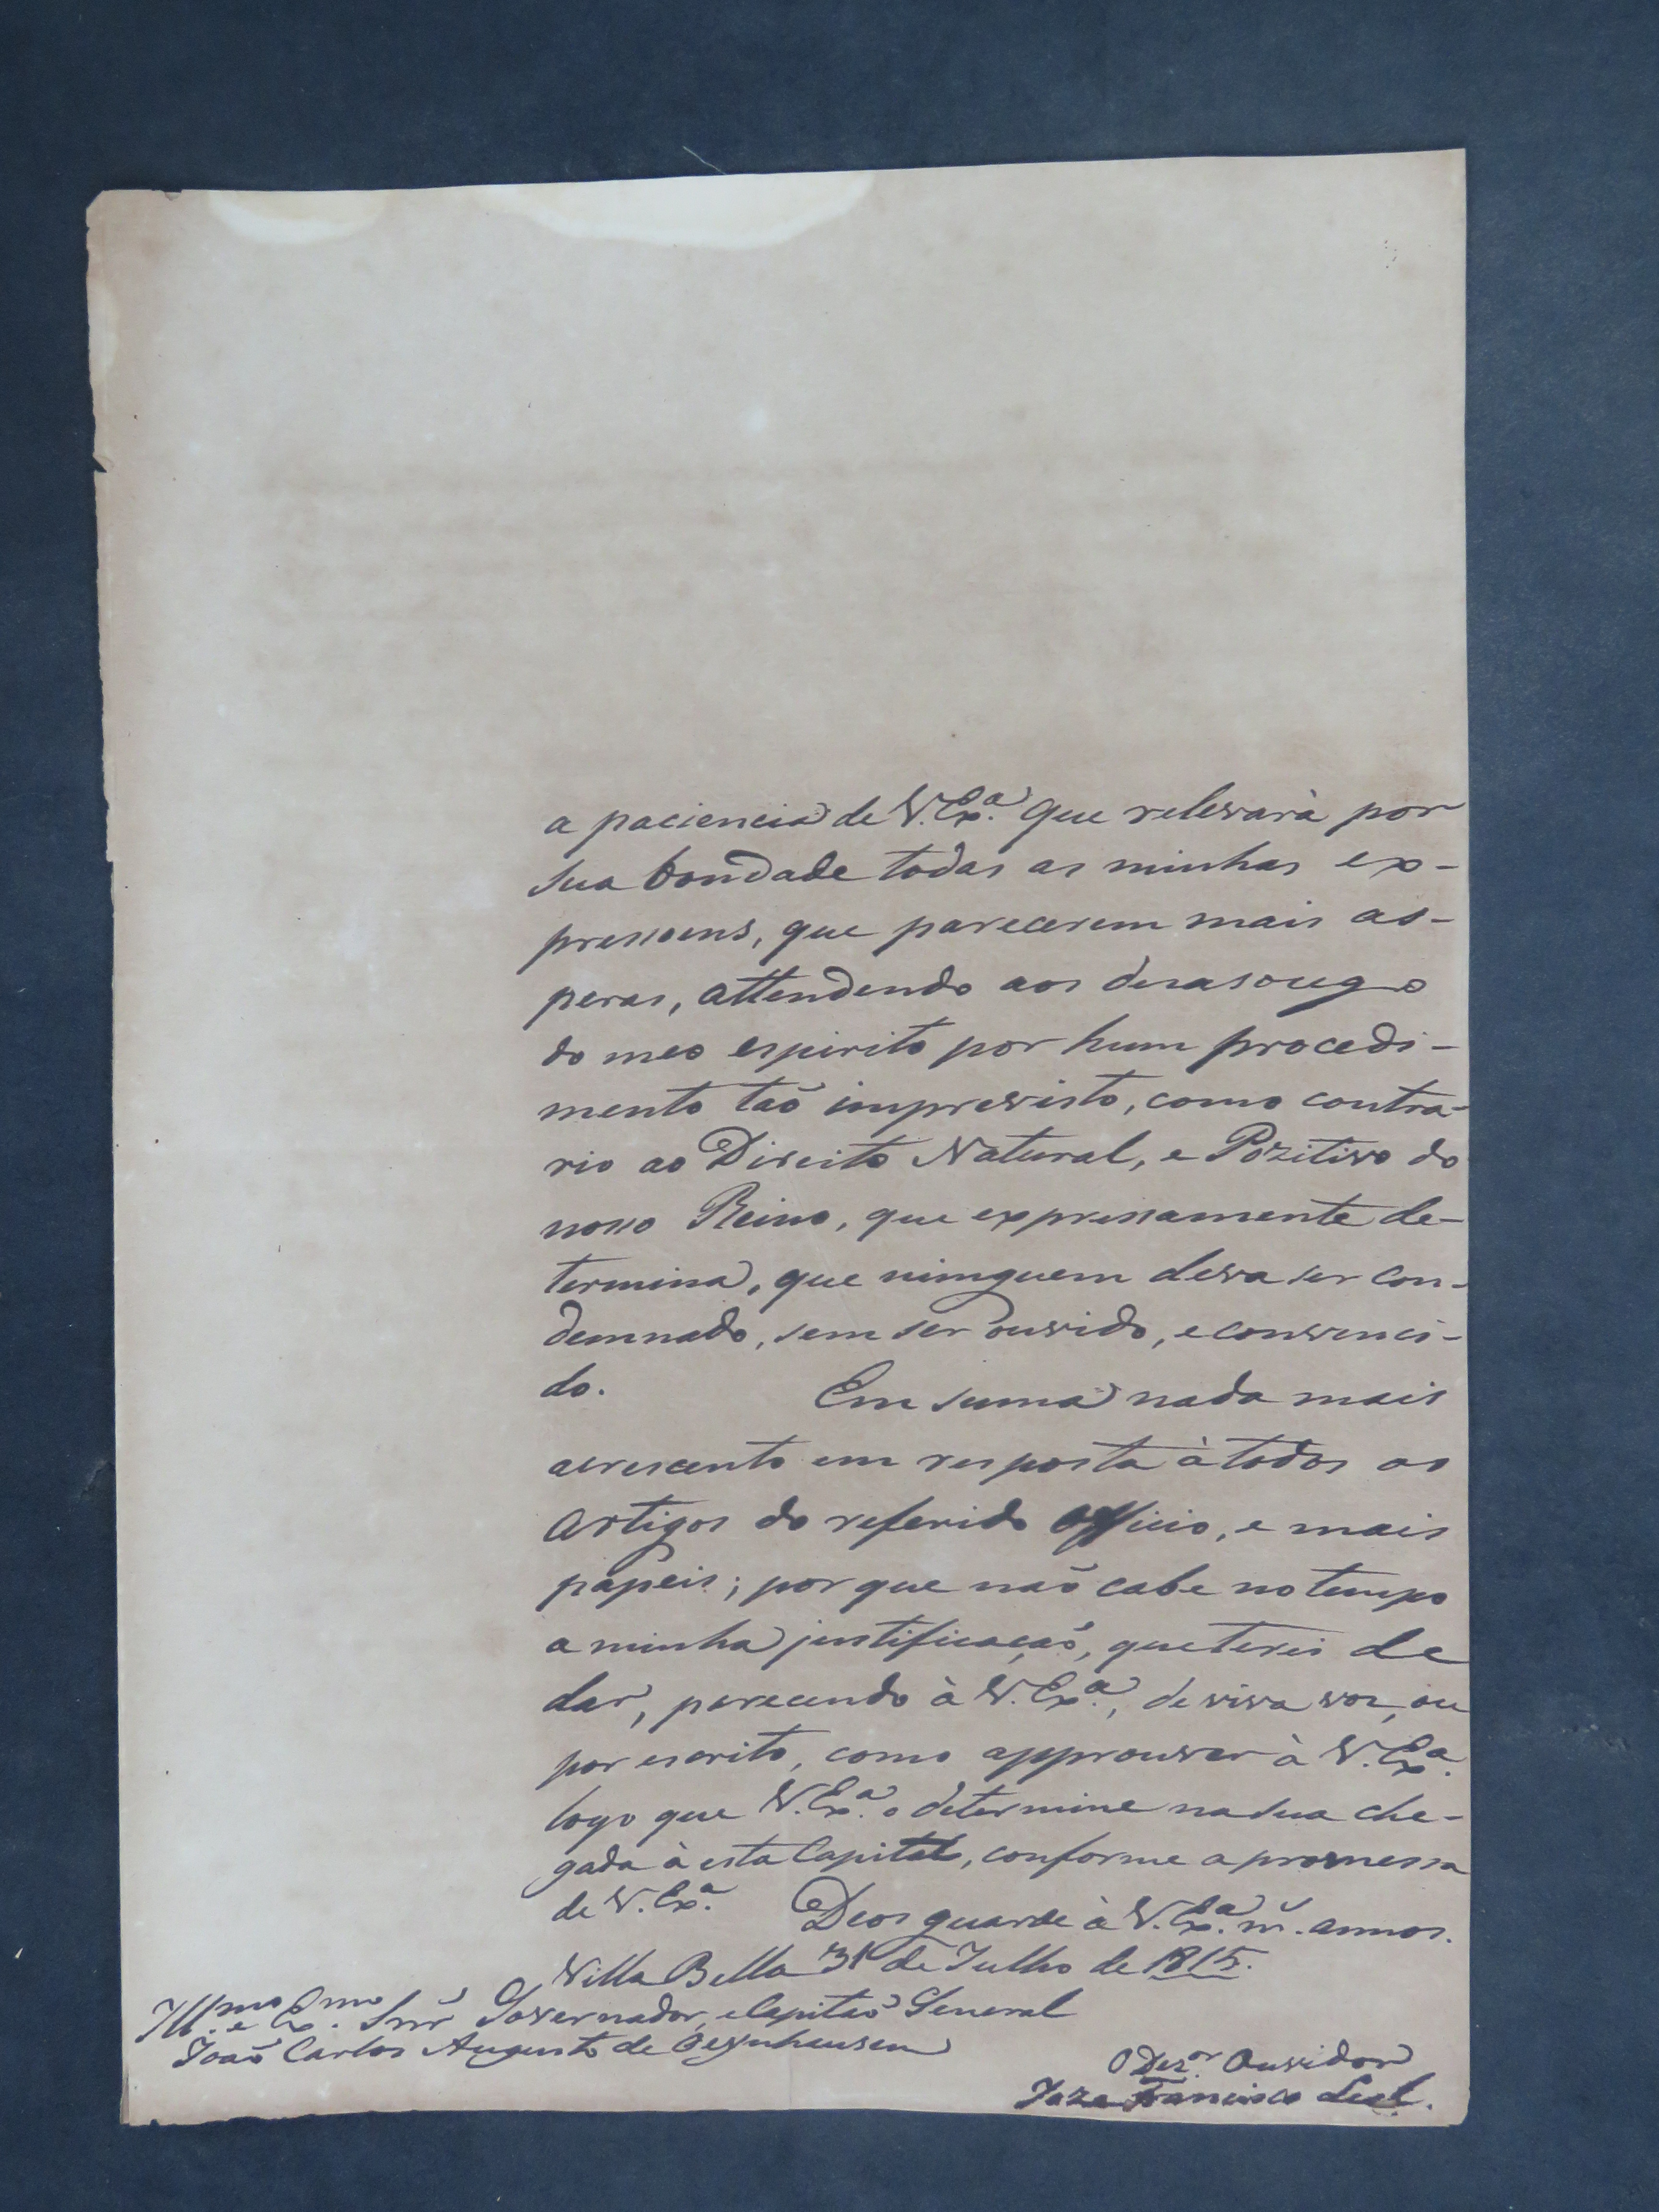 a paciencia de V. Exª. que relevarà por
sua bondade todas as minhas ex-
pressoens, que parecerem mais as-
peras, attendendo aos desasocego
do meo espirito por hum procedi-
mento taõ imprevisto, como contra-
rio ao Direito Natural, e Pozitivo do
nosso Reino, que expressamente de-
termina, que nimguem deva ser con-
demnado, sem ser ouvido, e convenci-
do. Em suma nada mais
acrescento em resposta à todos os
Artigos do referido Officio, e mais
papeis; por que naõ cabe no tempo
a minha justificaçaõ, que terei de
dar, parecendo à V. Exª., de viva voz, ou
por escrito, como approuver à V. Exª.
logo que V. Exª. o determine na sua che-
gada à esta Capital, conforme a promessa
de V. Exª. Deos guarde à V. Exª. m̃. annos.
Villa Bella 31 de Julho de 1815.
Illmo. e Exmo. Snr̃ Governador, e Capitaõ General
Joaõ Carlos Augusto de Oeynhausen
O Dezor. Ouvidor
Joze Francisco Leal.